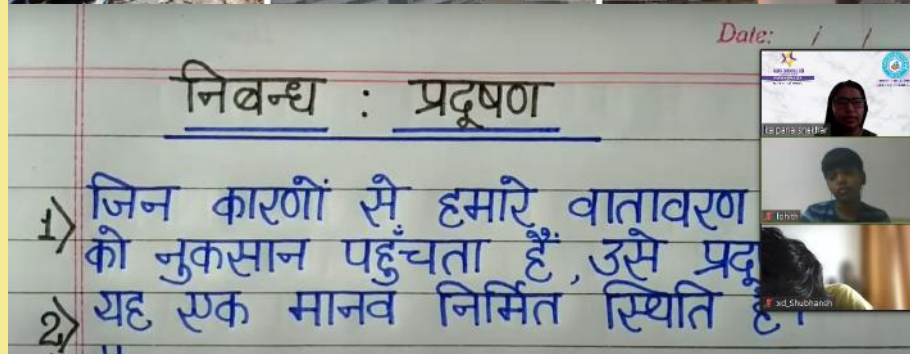 Date: / /
निबन्ध : प्रदूषण
1) जिन कारणों से हमारे वातावरण
को नुकसान पहुँचता हैं, उसे प्रदू
2) यह एक मानव निर्मित स्थिति है।
kalpana shekhar
lohith
xd_Shubhansh